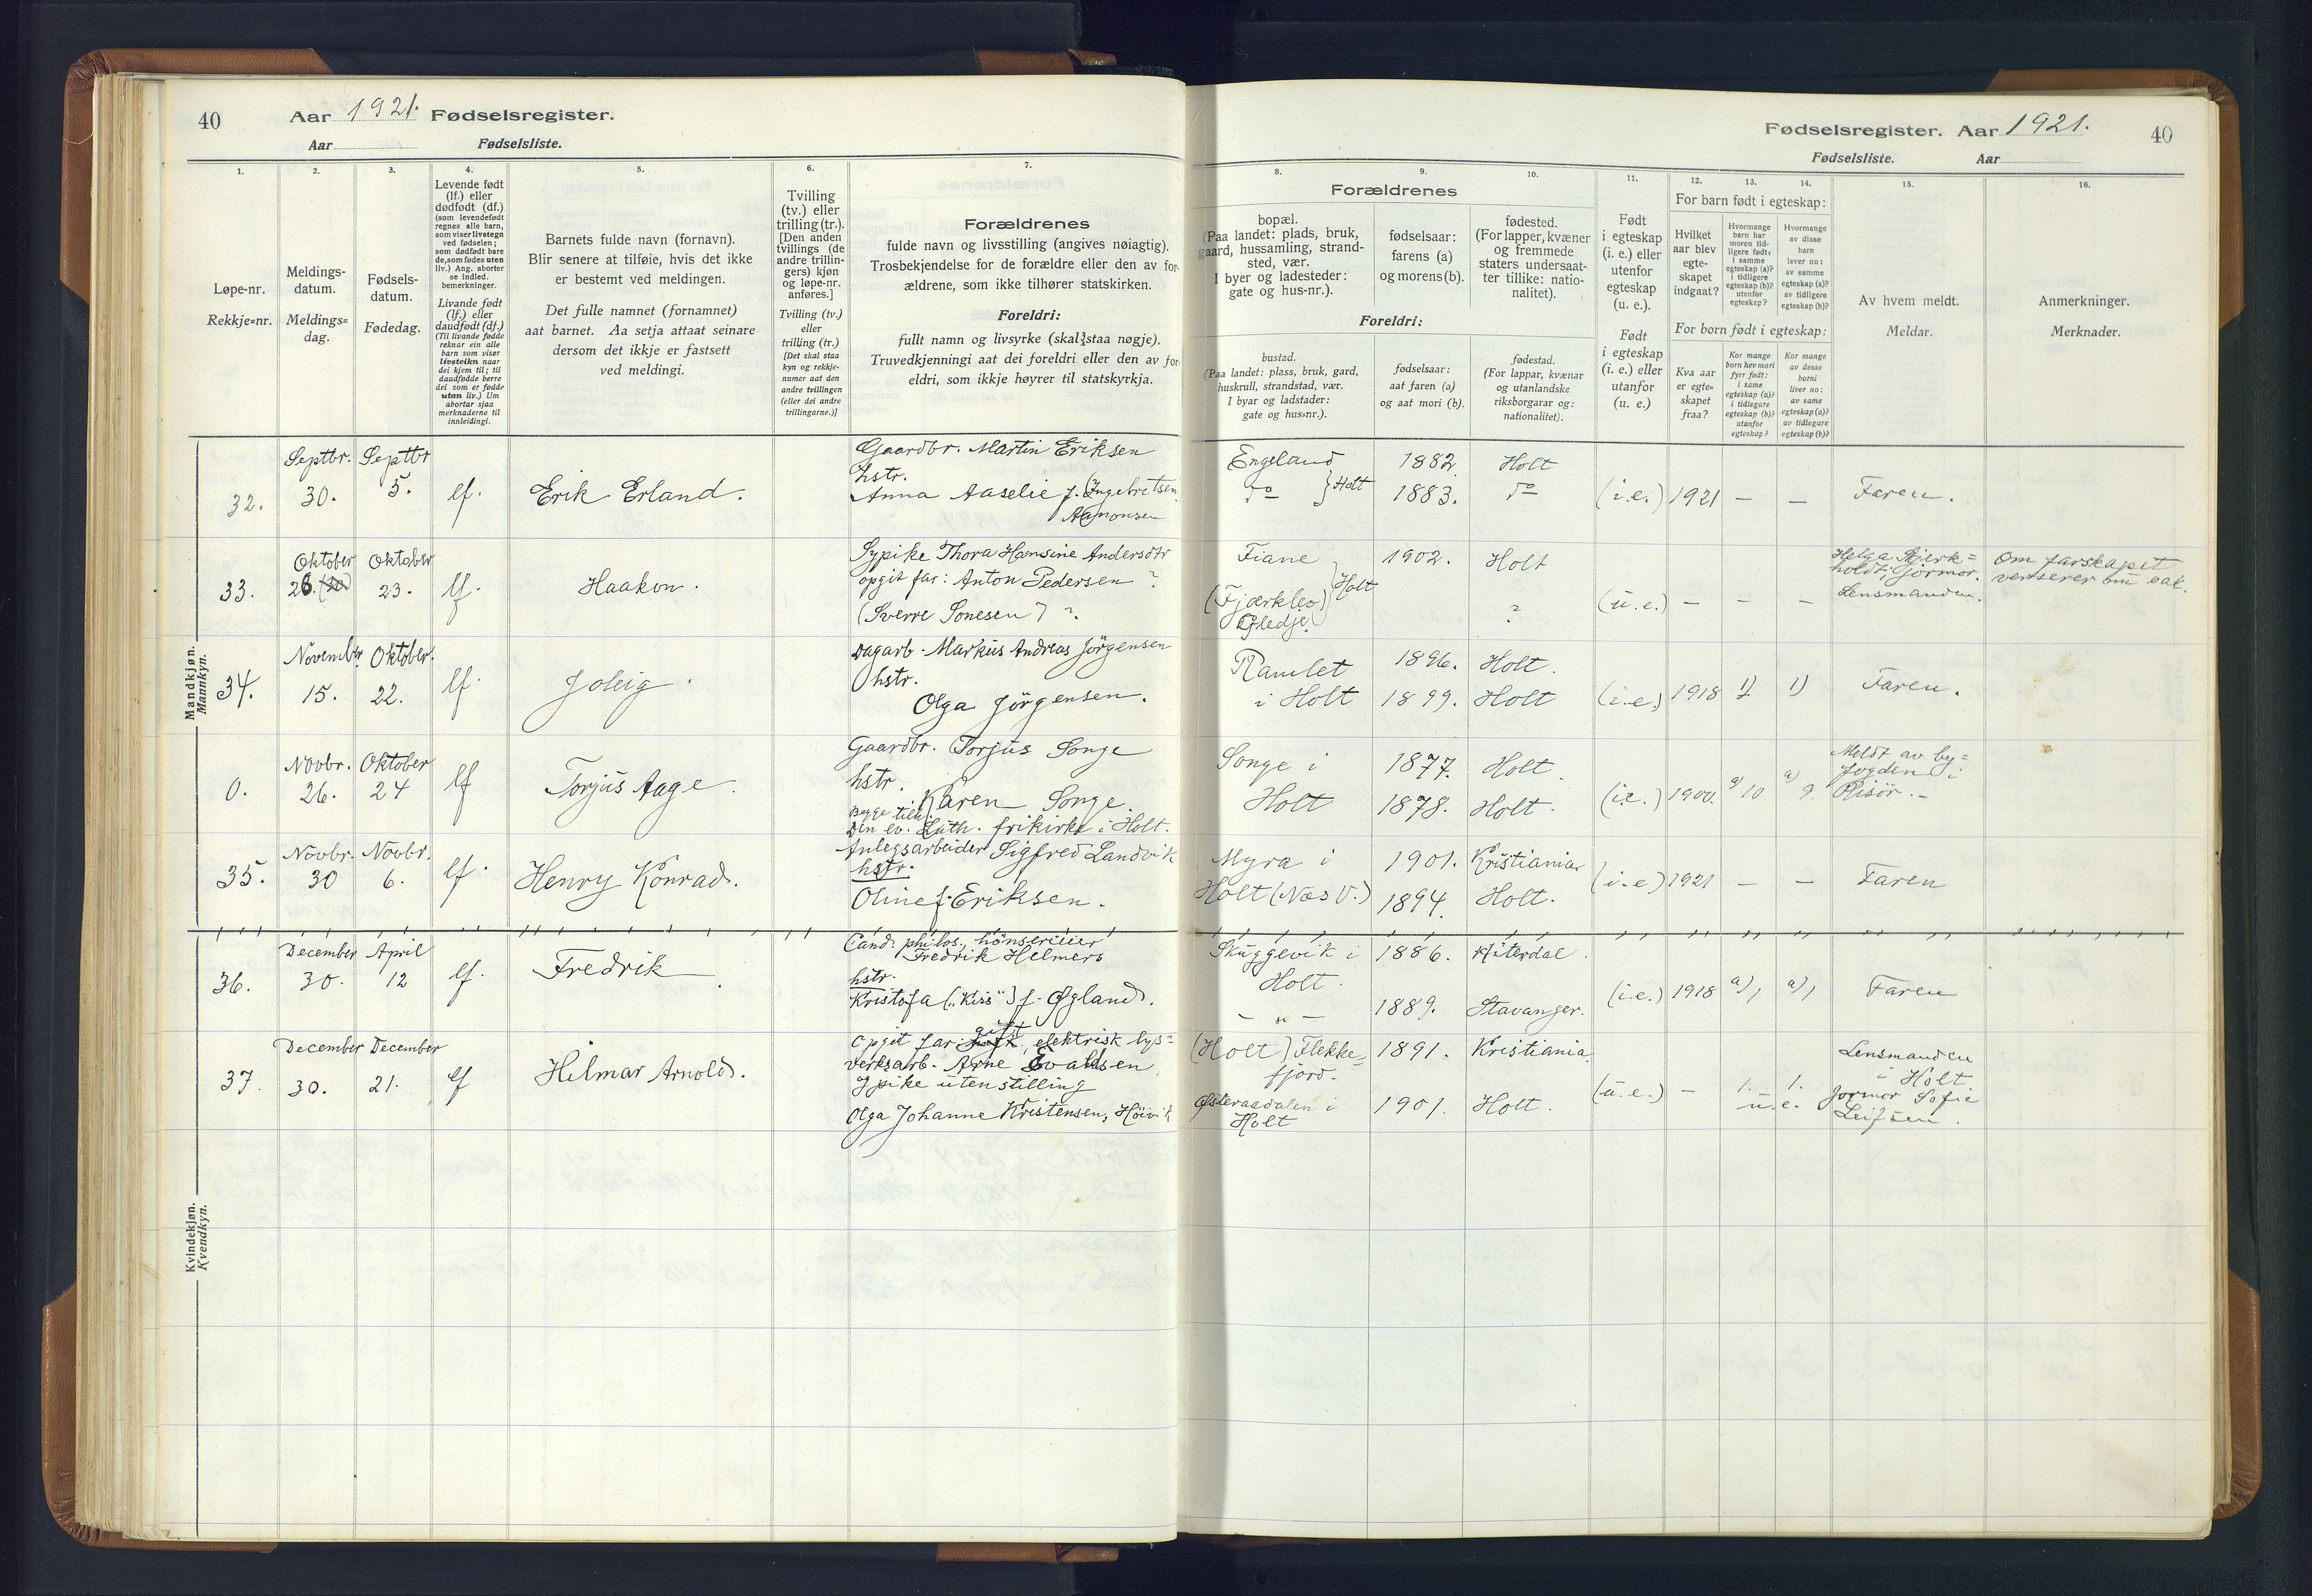 40 Aar 1921. Fødselsregister.
Aar Fødselsliste.
1.
Løpe-nr.
Rekkje=nr.
2.
Meldings-
datum.
Meldings=
dag.
3.
Fødsels-
datum.
Fødedag.
4.
Levende født
(lf.) eller
dødfødt (df.)
(som levendefødt
regnes alle barn,
som viser livstegn
ved fødselen;
som dødfødt bare
de, som fødes uten
liv.) Ang. aborter
se indled.
bemerkninger.
Livande født
(lf.) eller
daudfødt (df.)
(Til livande fødde
reknar ein alle
barn som viser
livsteikn naar
dei kjem til; til
daudfødde berre
dei som er fødde
utan liv.) Um
abortar sjaa
merknaderne til
innleidingi.
5.
Barnets fulde navn (fornavn).
Blir senere at tilføie, hvis det ikke
er bestemt ved meldingen.
Det fulle namnet (fornamnet)
aat barnet. Aa setja attaat seinare
dersom det ikkje er fastsett
ved meldingi.
6.
Tvilling
(tv.) eller
trilling (tr.).
[Den anden
tvillings (de
andre trillin-
gers) kjøn
og løpe-nr.
anføres.]
Tvilling (tv.)
eller
trilling (tr.)
[Det skal staa
kyn og rekkje-
numer aat den
andre tvillingen
(eller dei andre
trillingarne.)]
7.
Forældrenes
fulde navn og livsstilling (angives nøiagtig).
Trosbekjendelse for de forældre eller den av for-
ældrene, som ikke tilhører statskirken.
Foreldri:
fullt namn og livsyrke (skal staa nøgje).
Truvedkjenningi aat dei foreldri eller den av for-
eldri, som ikkje høyrer til statskyrkja.
Fødselsregister. Aar 1921. 40
Fødselsliste. Aar
8.
Forældrenes
bopæl.
(Paa landet: plads, bruk,
gaard, hussamling, strand-
sted, vær.
I byer og ladesteder:
gate og hus-nr.).
Foreldri:
bustad.
(Paa landet: plass, bruk, gard,
huskrull, strandstad, vær.
I byar og ladstader:
gate og hus=nr.).
9.
fødselsaar:
farens (a)
og morens (b).
fødselsaar:
aat faren (a)
og aat mori (b).
10.
fødested.
(For lapper, kvæner
og fremmede
staters undersaat-
ter tillike: natio-
nalitet).
fødestad.
(For lappar, kvænar
og utanlandske
riksborgarar og:
nationalitet).
11.
Født
i egteskap
(i. e.) eller
utenfor
egteskap
(u. e.).
Født
i egteskap
(i. e.) eller
utanfor
(u. e.)
12. 13. 14.
For barn født i egteskap:
Hvilket
aar blev
egte-
skapet
indgaat?
Hvormange
barn har
moren tid-
ligere født:
i samme
egteskap (a)?
i tidligere
egteskap (b)?
utenfor
egteskap?
Hvormange
av disse
barn
lever nu:
av samme
egteskap (a)?
av tidligere
egteskap (b)?
For born født i egteskap:
Kva aar
er egte=
skapet
fraa?
Kor mange
born hev mori
fyrr født:
i same
egteskap (a)?
i tidlegare
egteskap (b)?
utanfor
egteskap?
Kor mange
av desse
borni
liver no:
av same
egteskap (a)?
av tidlegare
egteskap (b)?
15.
Av hvem meldt.
Meldar.
16.
Anmerkninger.
Merknader.
Mandkjøn.
Mannkyn.
32. Septbr. 30. Septbr 5. lf. Erik Erland.
Gaardbr. Martin Eriksen
hstr.
Anna Aaselie f. (Ingebretsen
Aamonsen
Engeland 1882. Holt
do } Holt 1883. do (i.e.) 1921 – – Faren.
33. Oktober 28. Oktober 23. lf. Haakon.
Sypike Thora Hansine Andersdtr
opgit far: Anton Pedersen ?
(Sverre Sonesen) ?
Fiane 1902. Holt
(Fjærkleo) Holt ? (u.e.) – – –
Gledje
holdt, jormor.
Lensmanden.
Om farskapet
verserer nu sak.
34. November 15. Oktober. 22. lf. Joleig.
Dagarb. Markus Andreas Jörgensen
hstr.
Olga Jörgensen.
Ramlet 1896. Holt.
i Holt 1899. Holt (i.e.) 1918 1) 1) Faren.
0. Novbr. 26. Oktober 24 lf Torjus Aage.
Gaardbr. Torjus Songe
hstr.
Karen Songe.
Begge tilh.
Den ev. Luth. frikirke i Holt.
Songe i 1877. Holt.
Holt 1878. Holt. (i.e.) 1900. a) 10 a) 9
Meldt av by=
fogden i
Risör.–
35. Novbr. 30 Novbr. 6. lf. Henry Konrad.
Anlegsarbeider Sigfred Landvik
hstr.
Oline f. Eriksen.
Myra i 1901. Kristiania
Holt (Næs V.) 1894. Holt. (i.e) 1921 – – Faren
36. December 30. April 12 lf. Fredrik
Cand. philos., hönserieier
Fredrik Helmers
hstr.
Kristofa („Kiss") f. Øgland.
Skuggevik i 1886. Hiterdal.
Holt.
– „ – 1889. Stavanger. (i.e.) 1918 a) 1 a) 1 Faren
37. December 30. December 21. lf Hilmar Arnold.
gift
Opgit far: elektrisk lys=
verksarb. Arne Evaldsen
pike uten stilling
Olga Johanne Kristensen, Höivik
(Holt) Flekke= 1891. Kristiania.
fjord.
Østeraadalen i 1901. Holt. (u.e.) – 1. u.e. 1.
Holt
Lensmanden
i Holt.
Jormor Sofie
Leifsen.
Kvindekjøn.
Kvendkyn.